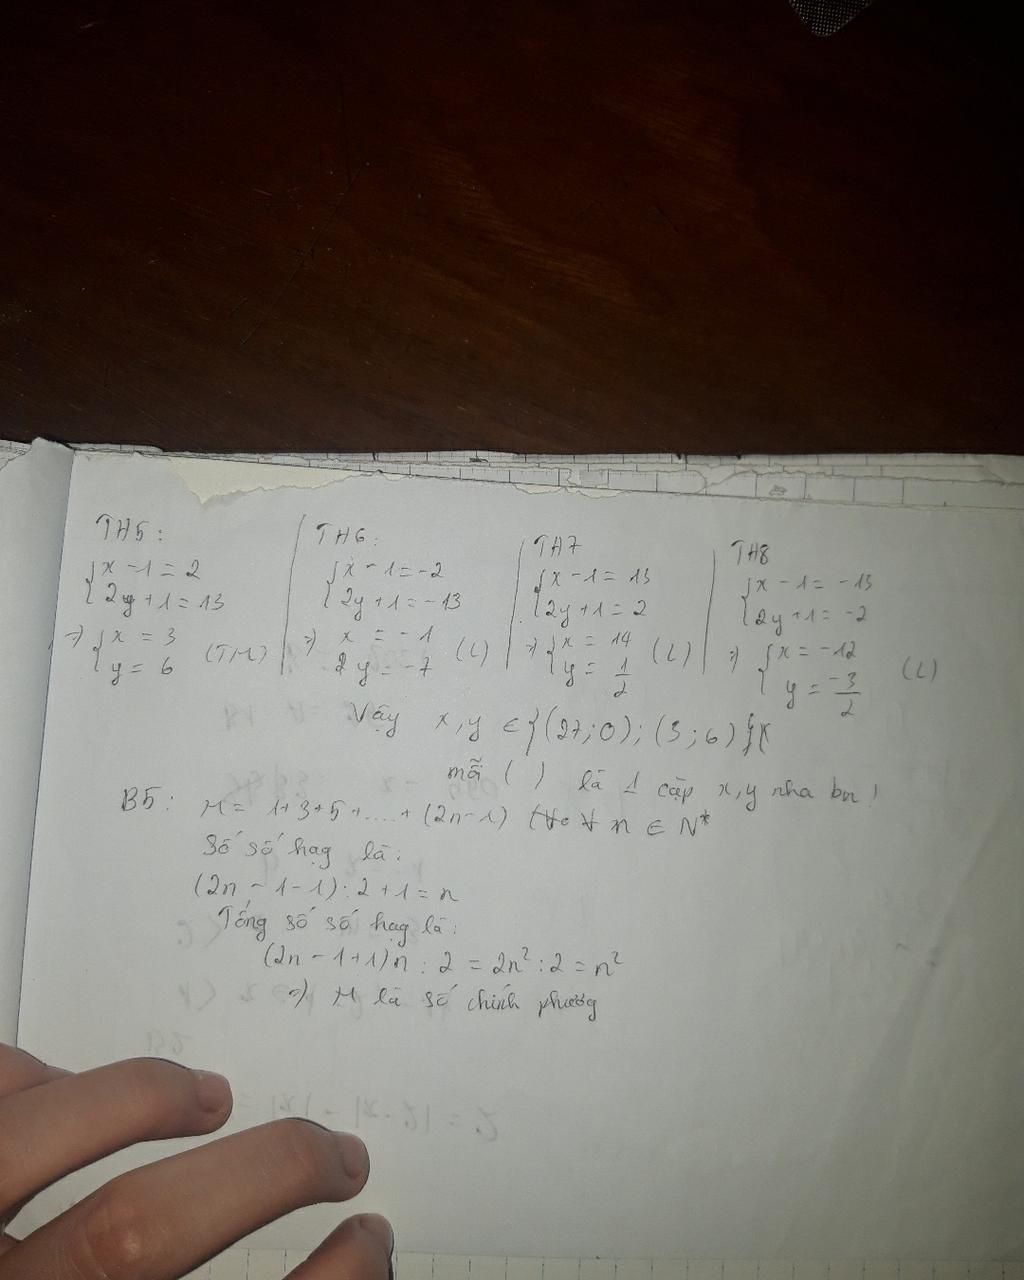 TH5:
{x - 1 = 2
{2y + 1 = 13
=> {x = 3
{y = 6 (TM)
TH6:
{x - 1 = -2
{2y + 1 = -13
=> x = -1
2y = -7 (L)
TH7
{x - 1 = 13
{2y + 1 = 2
=> {x = 14
{y = 1/2 (L)
TH8
{x - 1 = -13
{2y + 1 = -2
=> {x = -12
{y = -3/2 (L)
Vậy x, y ∈ {(27; 0); (3; 6)}
mỗi ( ) là 1 cặp x, y nha bn!
B5: M = 1 + 3 + 5 + .... + (2n - 1) ∀ n ∈ N*
Số số hạg là:
(2n - 1 - 1) : 2 + 1 = n
Tổng số số hạg là:
(2n - 1 + 1)n : 2 = 2n² : 2 = n²
=> M là số chính phương